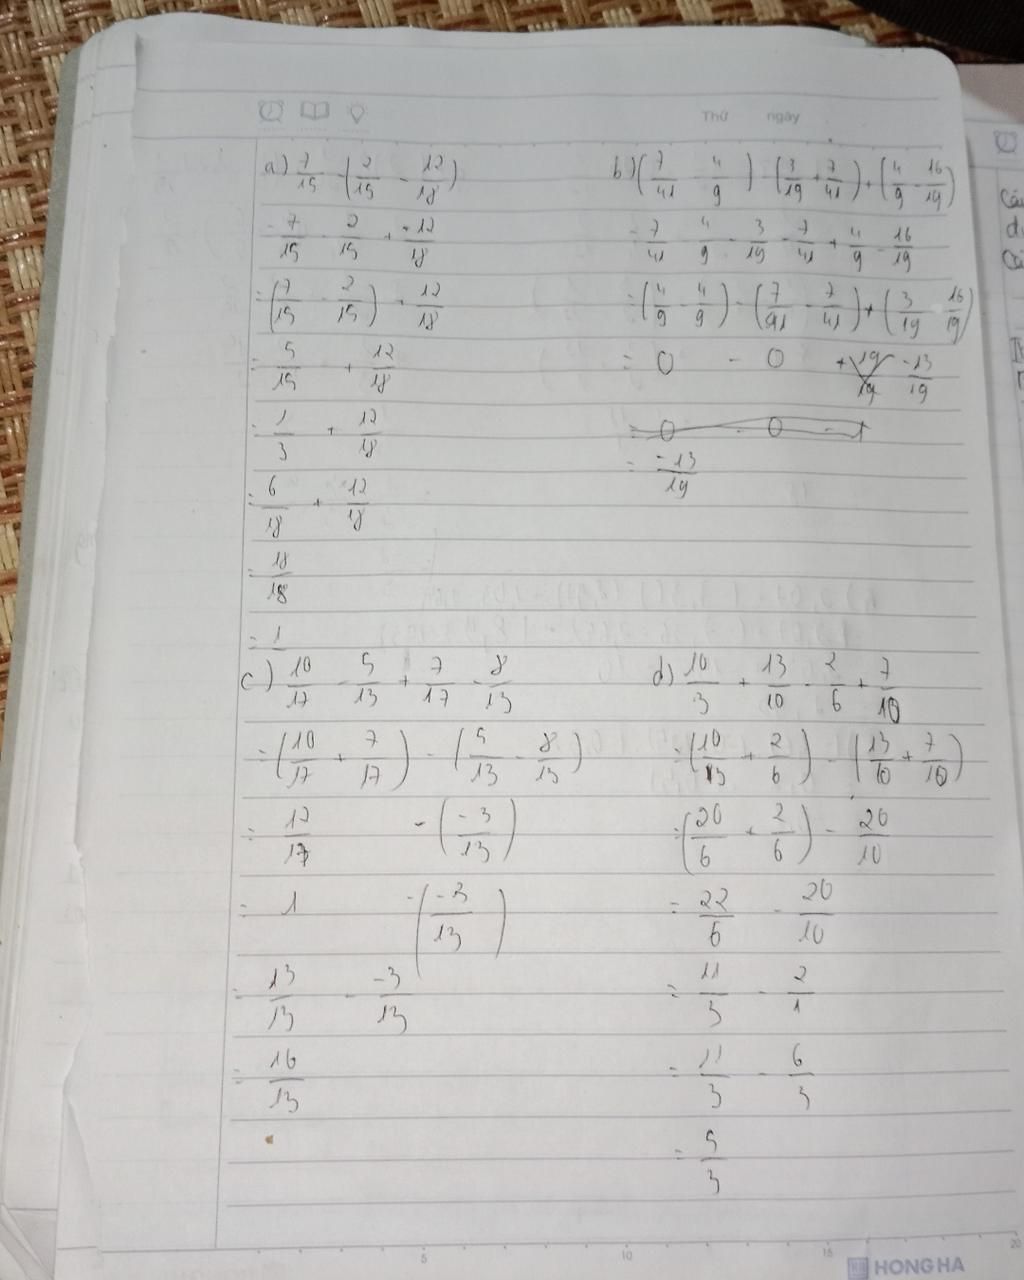 Thứ ngày
a) 7/15 - (2/15 - 12/18)
= 7/15 - 2/15 + -12/18
= (7/15 - 2/15) + 12/18
= 5/15 + 12/18
= 1/3 + 12/18
= 6/18 + 12/18
= 18/18
= 1
b) (7/41 - 4/9) - (3/19 + 7/41) + (4/9 - 16/19)
= 7/41 - 4/9 - 3/19 - 7/41 + 4/9 - 16/19
= (4/9 - 4/9) - (7/41 - 7/41) + (3/19 - 16/19)
= 0 - 0 + -13/19
= -13/19
c) 10/17 - 5/13 + 7/17 - 8/13
= (10/17 + 7/17) - (5/13 - 8/13)
= 17/17 - (-3/13)
= 1 - (-3/13)
= 13/13 - -3/13
= 16/13
d) 10/3 + 13/10 - 2/6 + 7/10
= (10/3 + 2/6) - (13/10 + 7/10)
= (20/6 + 2/6) - 20/10
= 22/6 - 20/10
= 11/3 - 2/1
= 11/3 - 6/3
= 5/3
5 10 15 20
HONG HA